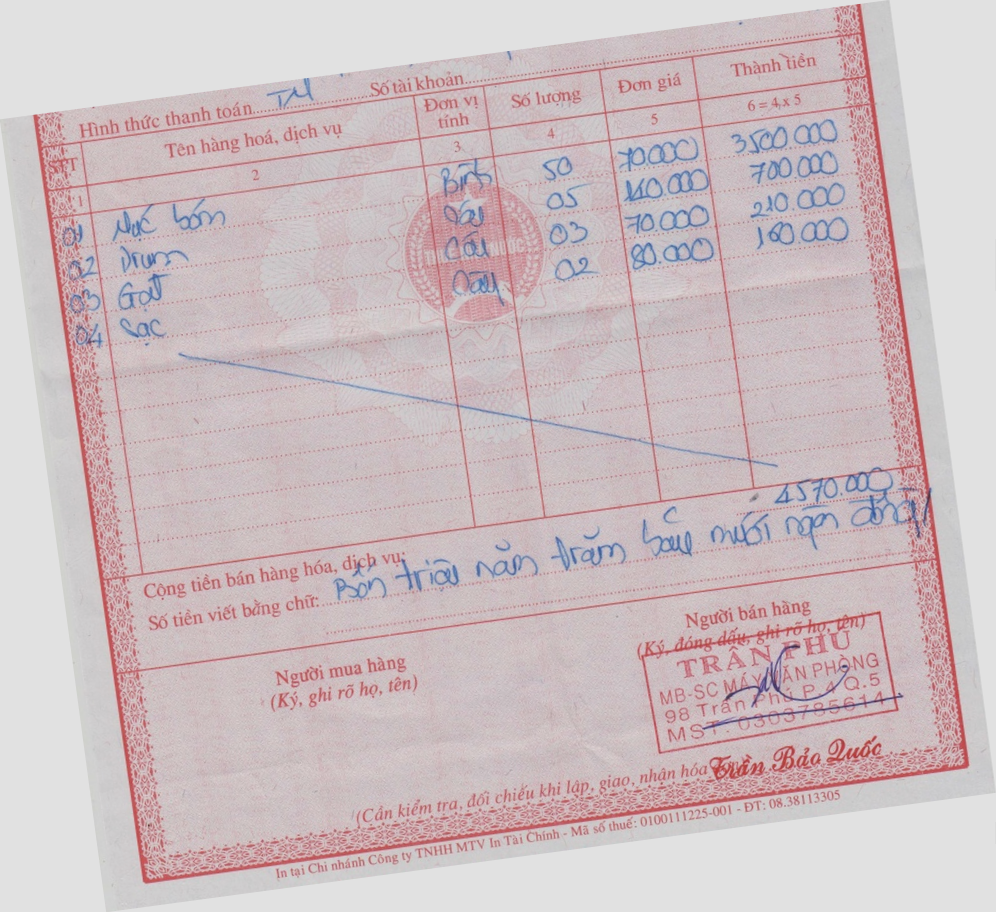 Hình thức thanh toán TM Số tài khoản
STT Tên hàng hoá, dịch vụ Đơn vị tính Số lượng Đơn giá Thành tiền
1 2 3 4 5 6 = 4 x 5
01 Mực bơm Bình 50 70.000 3.500.000
02 Drum Cây 05 140.000 700.000
03 Gạt Cây 03 70.000 210.000
04 Sạc Cây 02 80.000 160.000
Cộng tiền bán hàng hóa, dịch vụ: 4.570.000
Số tiền viết bằng chữ: Bốn triệu năm trăm bảy mươi ngàn đồng
Người mua hàng
(Ký, ghi rõ họ, tên)
Người bán hàng
(Ký, đóng dấu, ghi rõ họ, tên)
TRẦN PHÚ
MB-SC MÁY VĂN PHÒNG
98 Trần Phú P.4 Q.5
MST: 0303785614
Trần Bảo Quốc
(Cần kiểm tra, đối chiếu khi lập, giao, nhận hóa
In tại Chi nhánh Công ty TNHH MTV In Tài Chính - Mã số thuế: 0100111225-001 - ĐT: 08.38113305